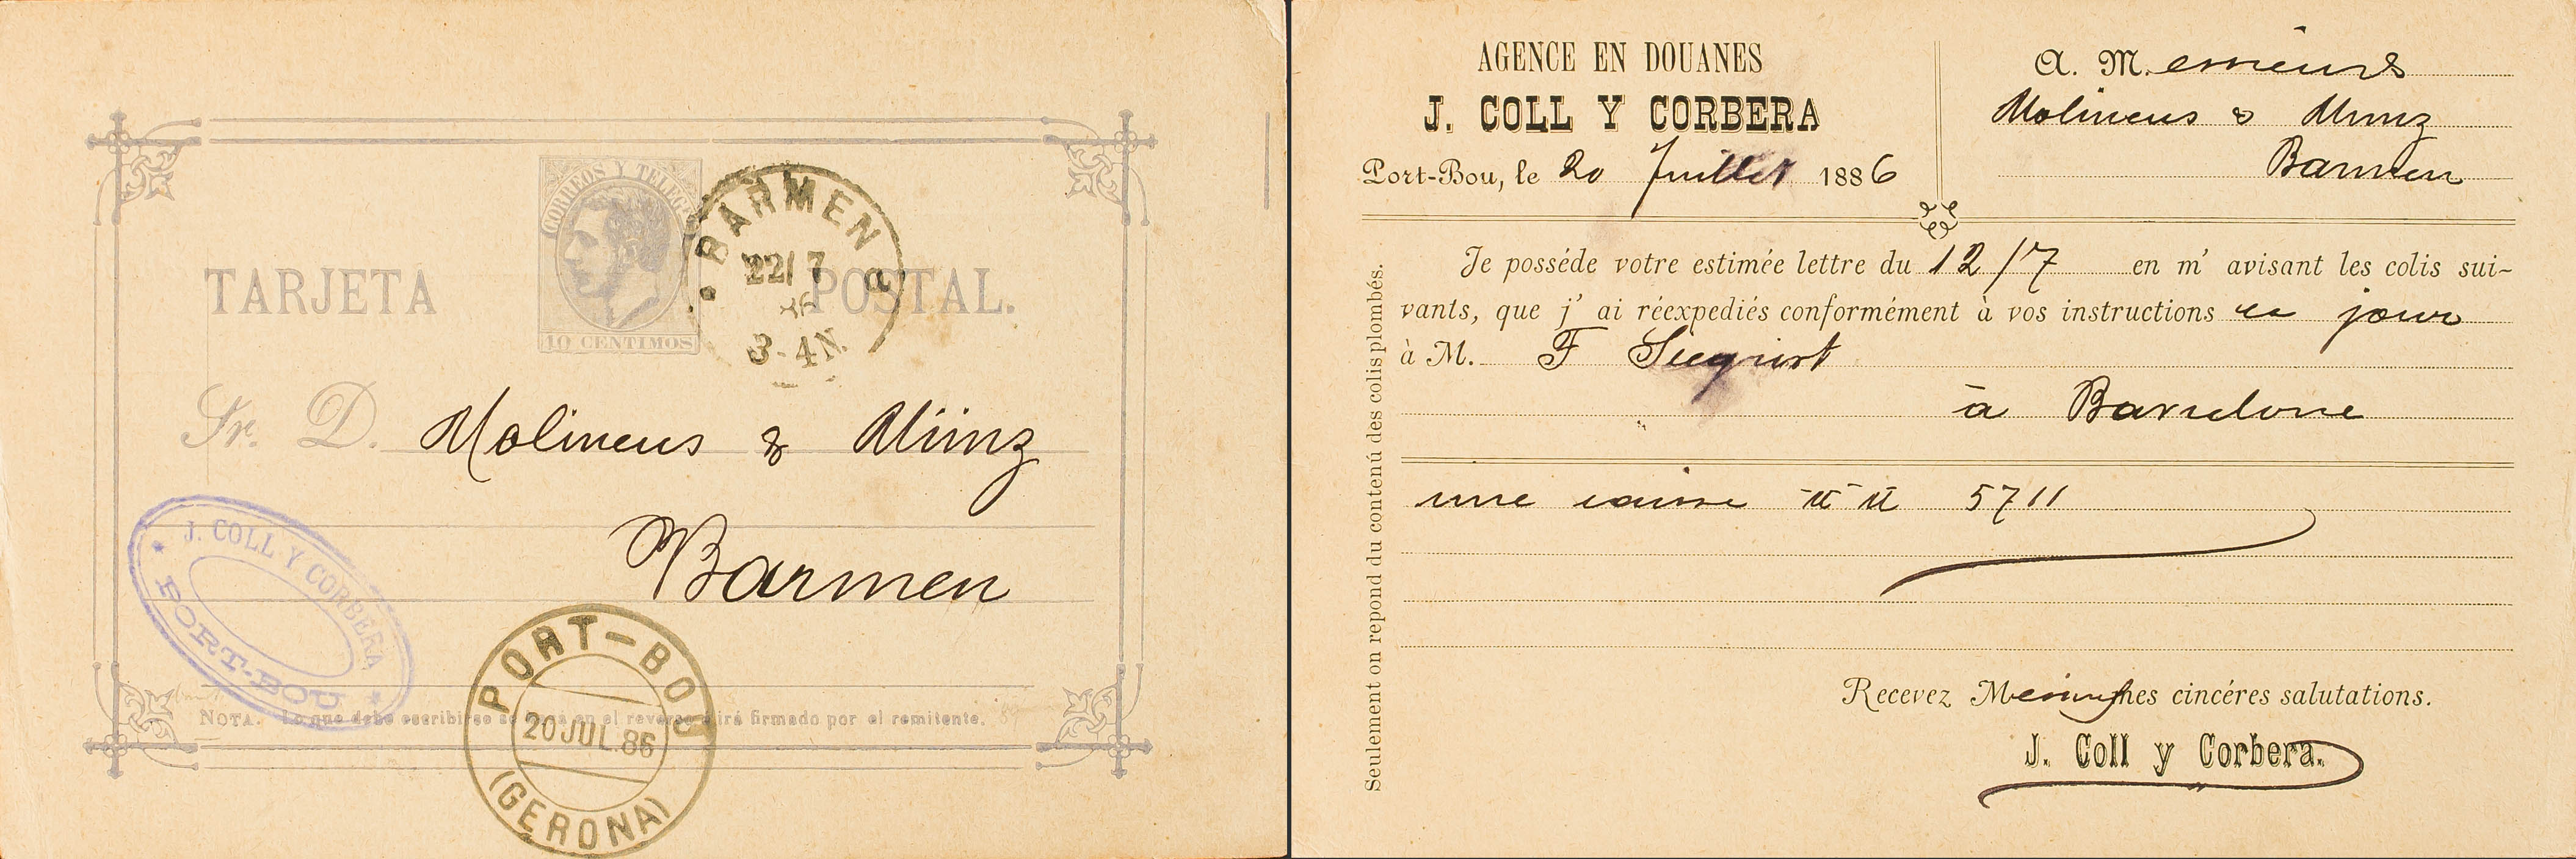 CORREOS Y TELEGF
10 CENTIMOS
TARJETA POSTAL.
BARMEN
22/7
86
3-4N.
Sr. D. Molineus & Münz
Barmen
J. COLL Y CORBERA
PORT-BOU
PORT-BOU
20 JUL. 86
(GERONA)
NOTA. Lo que debe escribirse se hará en el reverso é irá firmado por el remitente.
AGENCE EN DOUANES
J. COLL Y CORBERA
Port-Bou, le 20 Juillet 1886
A. M. essieurs
Molineus & Münz
Barmen
Seulement on repond du contenú des colis plombés.
Je posséde votre estimée lettre du 12/7 en m' avisant les colis sui-
vants, que j' ai réexpediés conformément à vos instructions ce jour
à M. F Siegrist
à Barcelone
une caisse 5711
Recevez Messieurs mes cincéres salutations.
J. Coll y Corbera.